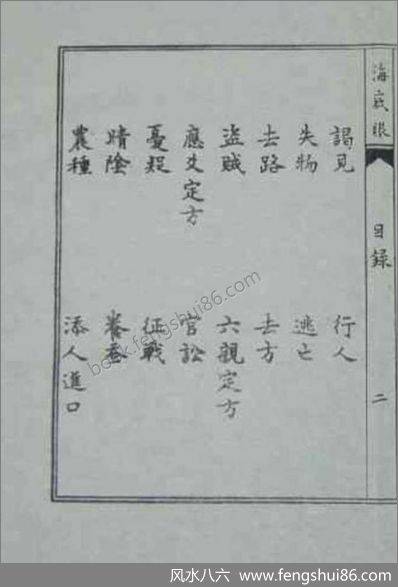 海底眼
目録
二
謁見 行人
失物 逃亡
去路 去方
盜賊 六親定方
應爻定方 官訟
憂疑 征戰
晴陰 養蚕
農種 添人進口
book.fengshui86.com
风水八六 www.fengshui86.com